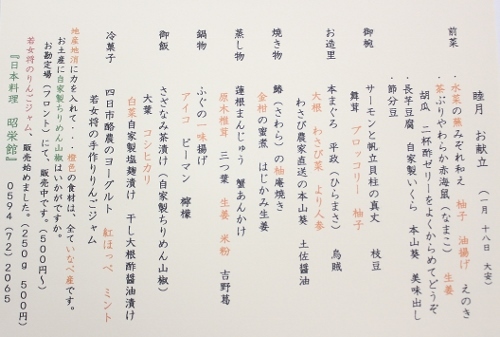 睦月 お献立 (一月 十八日 大安)
前菜 ・水菜の蕪みぞれ和え 柚子 油揚げ えのき
・茶ぶりやわらか赤海鼠(なまこ) 生姜
胡瓜 二杯酢ゼリーをよくからめてどうぞ
・長芋豆腐 自家製いくら 本山葵 美味出し
・節分豆
御椀 サーモンと帆立貝柱の真丈 枝豆
舞茸 ブロッコリー 柚子
お造里 本まぐろ 平政(ひらまさ) 烏賊
大根 わさび菜 より人参
わさび農家直送の本山葵 土佐醤油
焼き物 鰆(さわら)の柚庵焼き
金柑の蜜煮 はじかみ生姜
蒸し物 蓮根まんじゅう 蟹あんかけ
原木椎茸 三つ葉 生姜 米粉 吉野葛
鍋物 ふぐの一味揚げ
アイコ ピーマン 檸檬
御飯 さざなみ茶漬け(自家製ちりめん山椒)
大葉 コシヒカリ
白菜自家製塩麹漬け 干し大根酢醤油漬け
冷菓子 四日市酪農のヨーグルト 紅ほっぺ ミント
若女将の手作りりんごジャム
地産地消に力を入れて・・橙色の食材は、全ていなべ産です。
お土産に自家製ちりめん山椒はいかがですか。
お勘定場(フロント)にて、販売中です。(500円~)
若女将のりんごジャム、販売始めました。(250g 500円)
『日本料理 昭栄館』 0594(72)2065